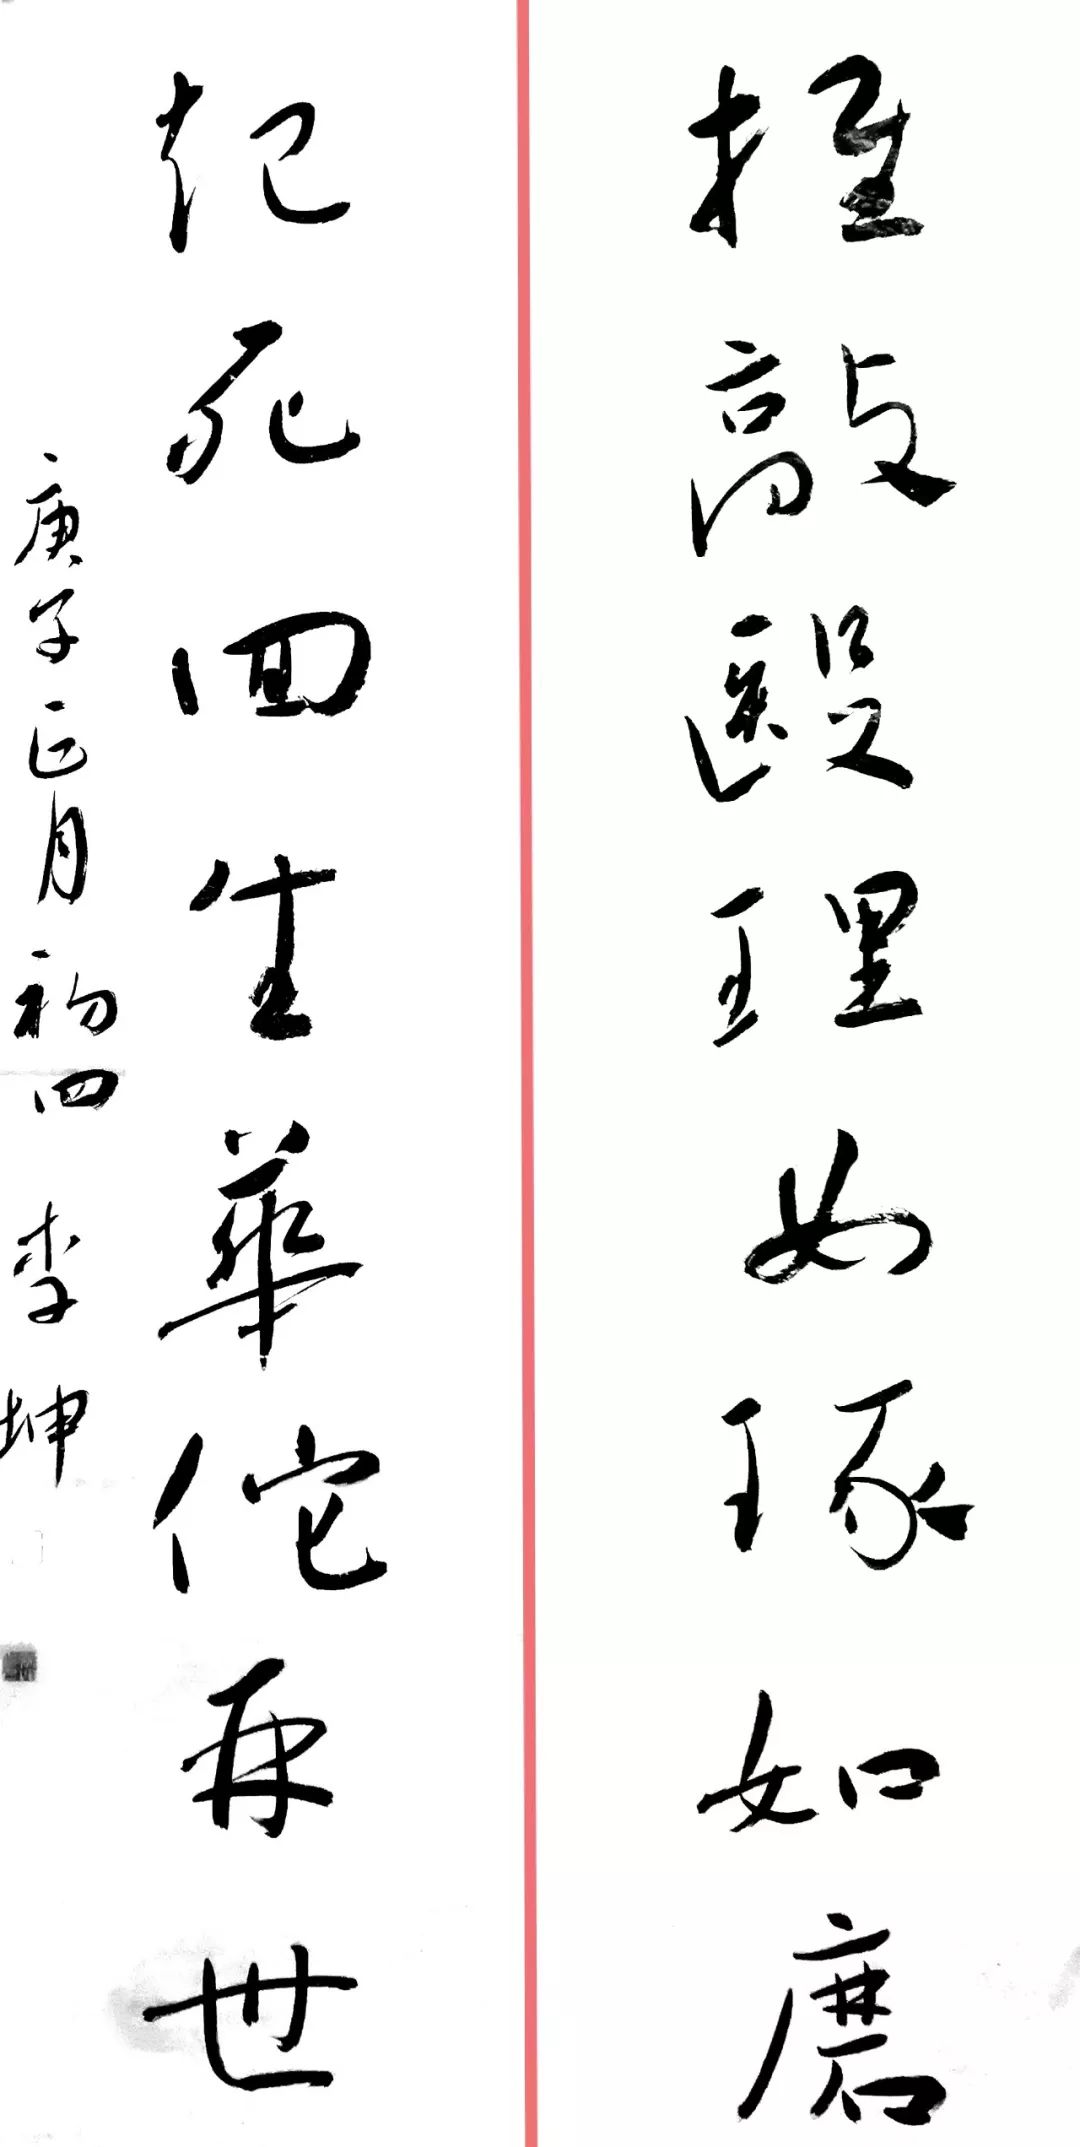 推敲毉理如琢如磨
起死回生華佗再世
庚子正月初四 李坤